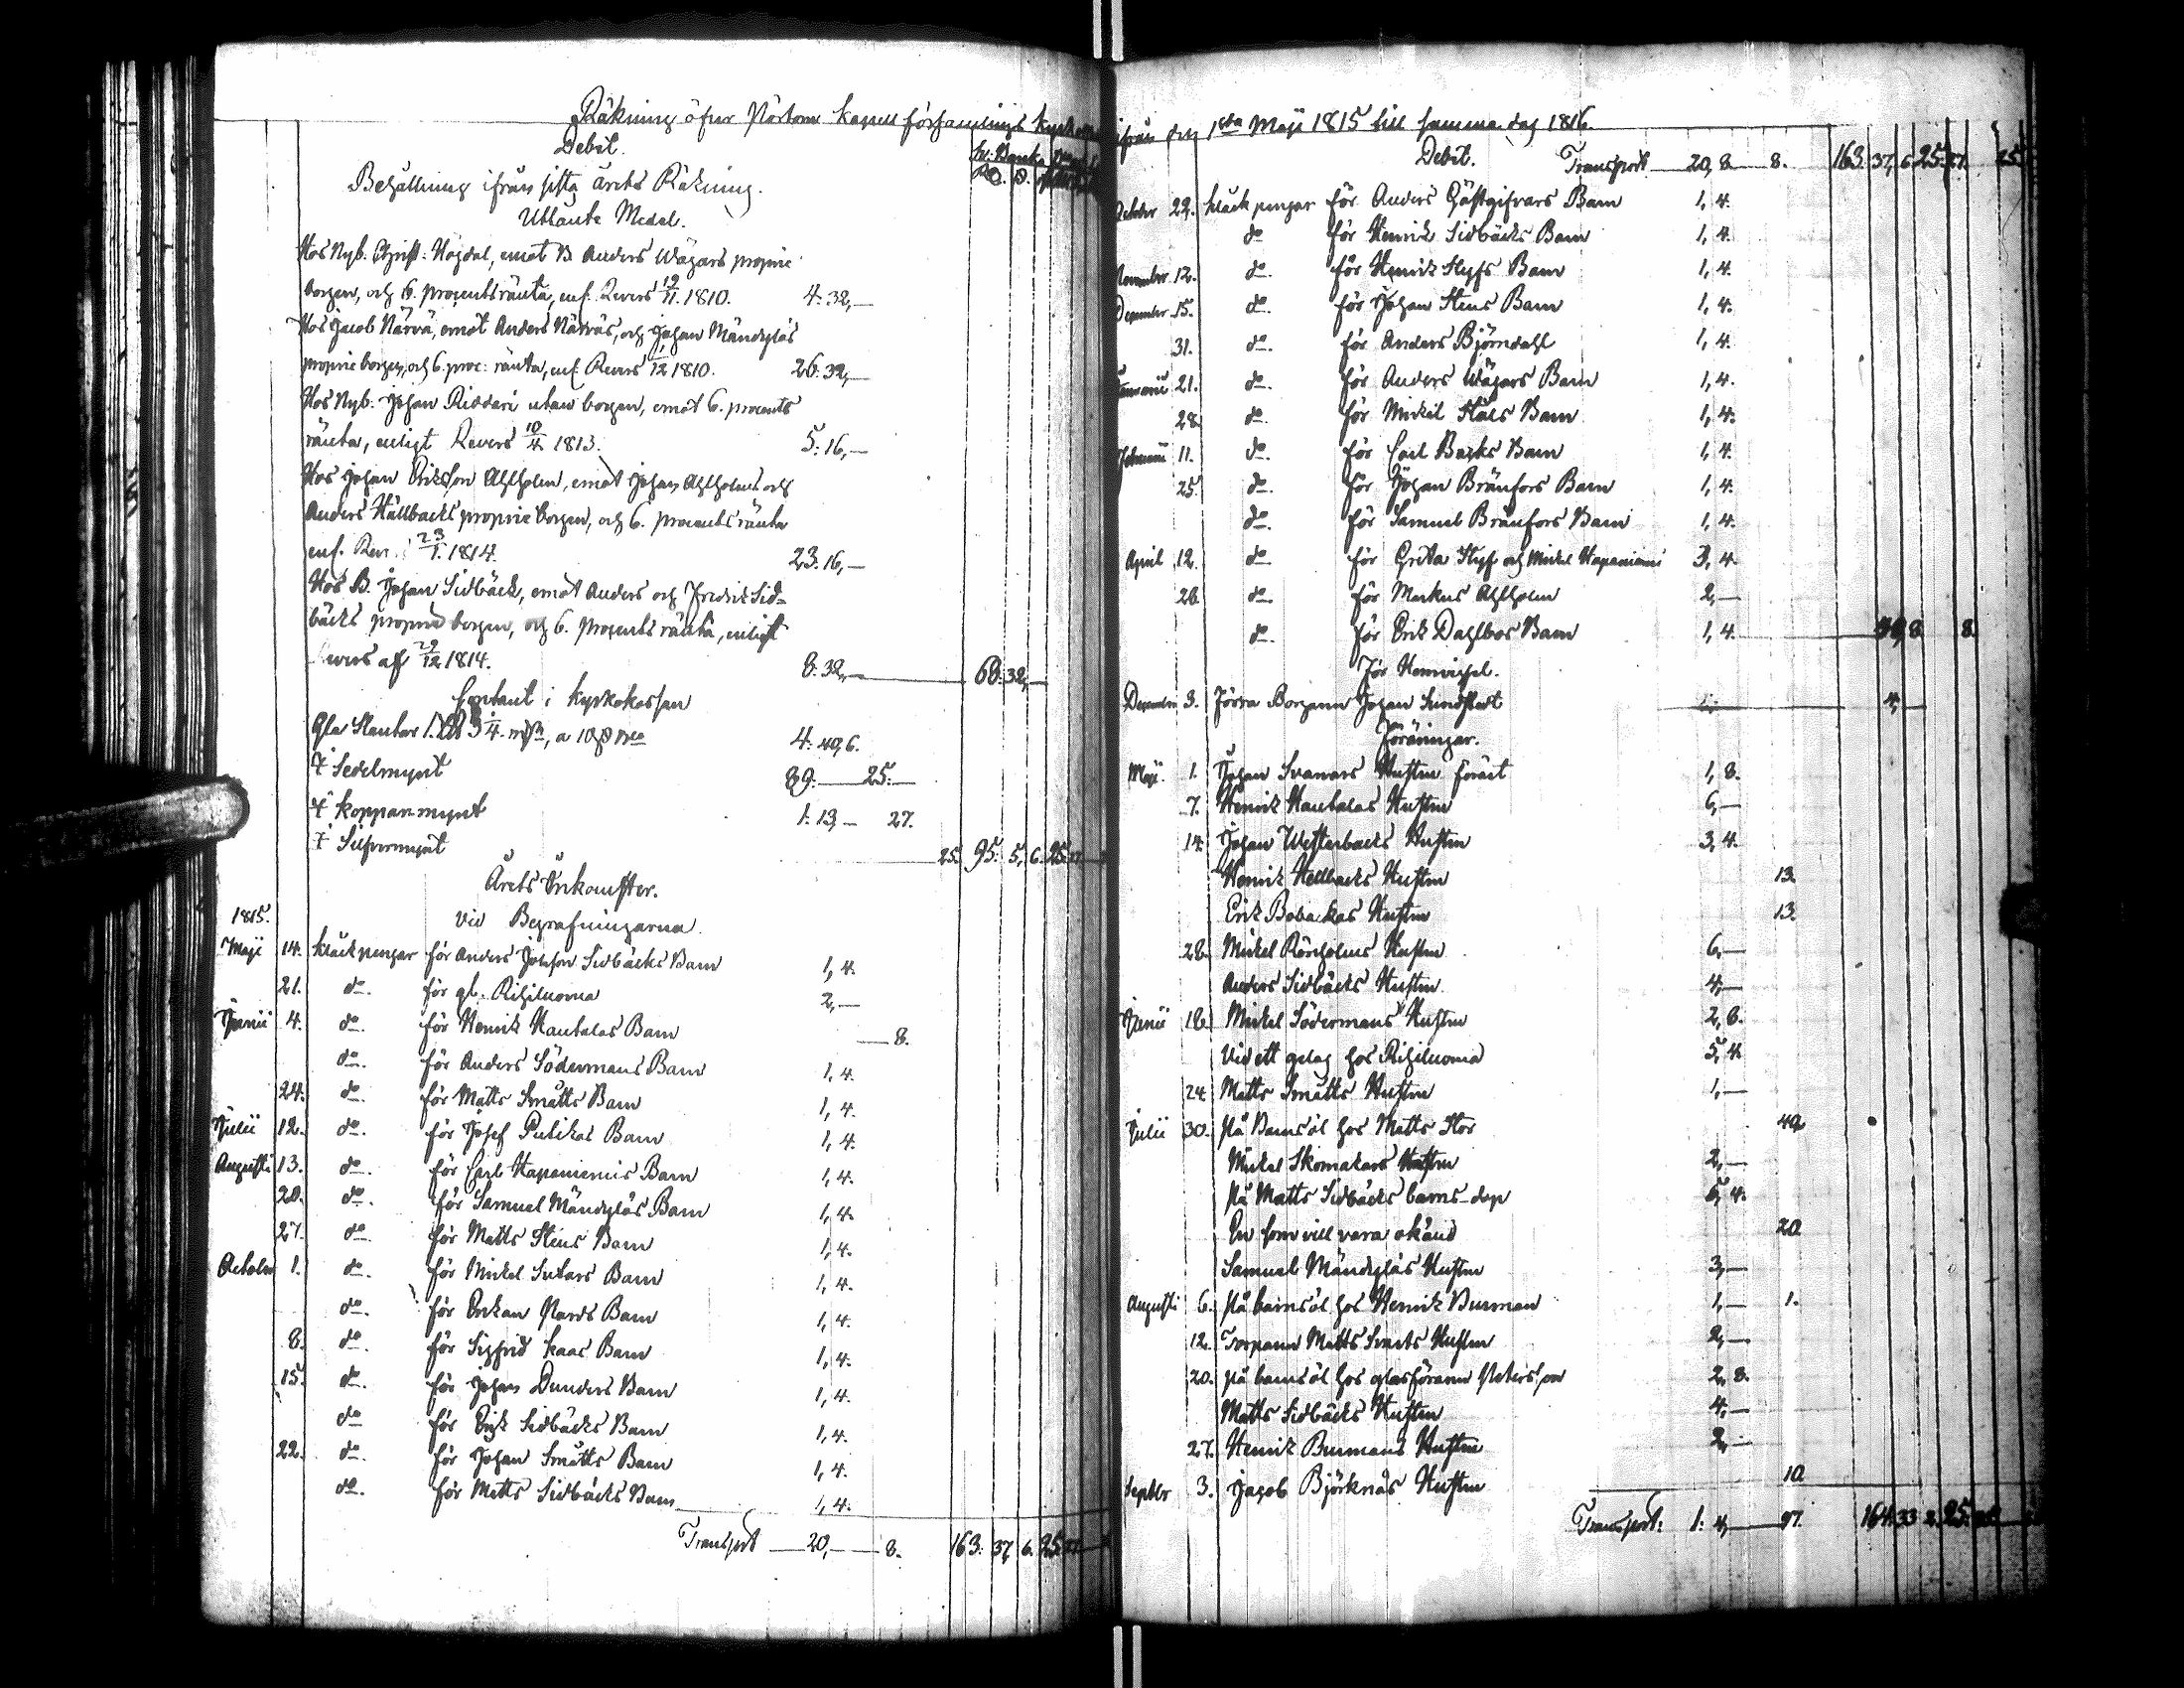 Räkning öfver Pörtom Kapell församlings Kyrkocassa
Debit.
Sv: Banko
Rd. s.
Behållning ifrån sista årets Räkning.
Utlante Medel.
Hos Nyb. Christ: Högdal, emot B. Anders Wägars proprie
borgen, och 6. procents ränta, enl. Revers 19/11. 1810. 4: 32,—
Hos Jacob Närvä, emot Anders Närväs, och Johan Mändyläs
proprie borgen, och 6. proc: ränta, enl. Revers 1/12 1810. 26: 32,—
Hos Nyb. Johan Riddari utan borgen, emot 6. procents
ränta, enligt Revers 10/4 1813. 5: 16,—
Hos Johan Erikson Ahlholm, emot Johan Ahlholms och
Anders Hällbacks proprie borgen, och 6. procents ränta
enl. Rev. 23/1. 1814. 23: 16,—
Hos B. Johan Sidbäck, emot Anders och Fredrik Sid-
bäcks proprie borgen, och 6. procents ränta, enligt
Revers af 29/12 1814. 8: 32,— 68: 32,—
Contant i Kyrkokassan
4: 40, 6.
i Sedelmynt 89.— 25.—
i kopparmynt 1: 13,— 27.
i Silfvermynt 25. 95: 5, 6. 25: 27.
Årets Inkomster.
1815. Vid Begrafningarna.
Maji 14. Kläckpengar för Anders Johnson Sidbäcks Barn 1, 4.
21. do. för gl. Rihiluoma 2,—
Junii 4. do. för Henrik Hautalas Barn — 8.
do. för Anders Södermans Barn 1, 4.
24. do. för Matts Smätts Barn 1, 4.
Julii 12. do. för Josef Pulikas Barn 1, 4.
Augusti 13. do. för Carl Hapaniemis Barn 1, 4.
20. do. för Samuel Mändyläs Barn 1, 4.
27. do. för Matts Stens Barn 1, 4.
October 1. do. för Mickel Sutars Barn 1, 4.
do. för Erkan Nards Barn 1, 4.
8. do. för Sigfrid Kaas Barn 1, 4.
15. do. för Johan Dunders Barn 1, 4.
do. för Erik Sidbäcks Barn 1, 4.
22. do. för Johan Smätts Barn 1, 4.
do. för Matts Sidbäcks Barn 1, 4.
Transport — 20,— 8. 163: 37, 6. 25: 27.
ifrån den 1sta Maji 1815 till samma dag 1816.
Debit. Transport 20, 8 — 8. 163. 37, 6. 25: 27. 25.
October 22. Kläckpengar för Anders Gästgifvars Barn 1, 4.
do. för Henrik Sidbäcks Barn 1, 4.
November 12. do. för Henrik Styfs Barn 1, 4.
December 15. do. för Johan Stens Barn 1, 4.
31. do. för Anders Björndahl 1, 4.
Januarii 21. do. för Anders Wägars Barn 1, 4.
28. do. för Mickel Ståls Barn 1, 4.
Februarii 11. do. för Carl Backs Barn 1, 4.
25. do. för Johan Bränfors Barn 1, 4.
do. för Samuel Bränfors Barn 1, 4.
April 12. do. för Greta Styf och Mickel Hapaniemi 3, 4.
26. do. för Markus Ahlholm 2,—
do. för Erik Dahlbos Barn 1, 4. 8. 8.
För Hemvigsel.
December 3. Förra Borgaren Johan Sundstedt 4,—
Föräringar.
Maji. 1. Johan Svanars Hustru förärt 1, 8.
7. Henrik Hautalas Hustru 6,—
14. Johan Westerbacks Hustru 3, 4.
Henrik Hellbacks Hustru 13.
Erik Bobackas Hustru 13.
28. Mickel Rönholms Hustru 6,—
Anders Sidbäcks Hustru 4,—
Junii 18. Mickel Södermans Hustru 2, 8.
Vid ett gelag hos Rihiluoma 5, 4.
24. Matts Smätts Hustru 1,—
Julii 30. På Barnsöl hos Matts Stor 40.
Mickel Skomakars Hustru 2,—
På Matts Sidbäcks barns-dop 6, 4.
En som vill vara okänd 20.
Samuel Mändyläs Hustru 3,—
Augusti 6. På barnsöl hos Henrik Burman 1,— 1.
12. Torparen Matts Svarts Hustru 2,—
20. På barnsöl hos glasföraren Peterson 2, 8.
Matts Sidbäcks Hustru 4,—
27. Henrik Burmans Hustru 2,—
Septbr 3. Jacob Björknäs Hustru 10.
Transport: 1: 4,— 97. 164. 33 25.